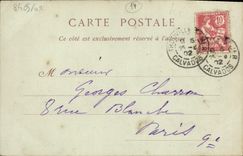 CARTE POSTALE
Ce côté est exclusivement réservé à l'adresse
10
02
CALVADOS
02
CALVADOS
Monsieur
Georges Charron
8 rue Blanche
Paris 9e